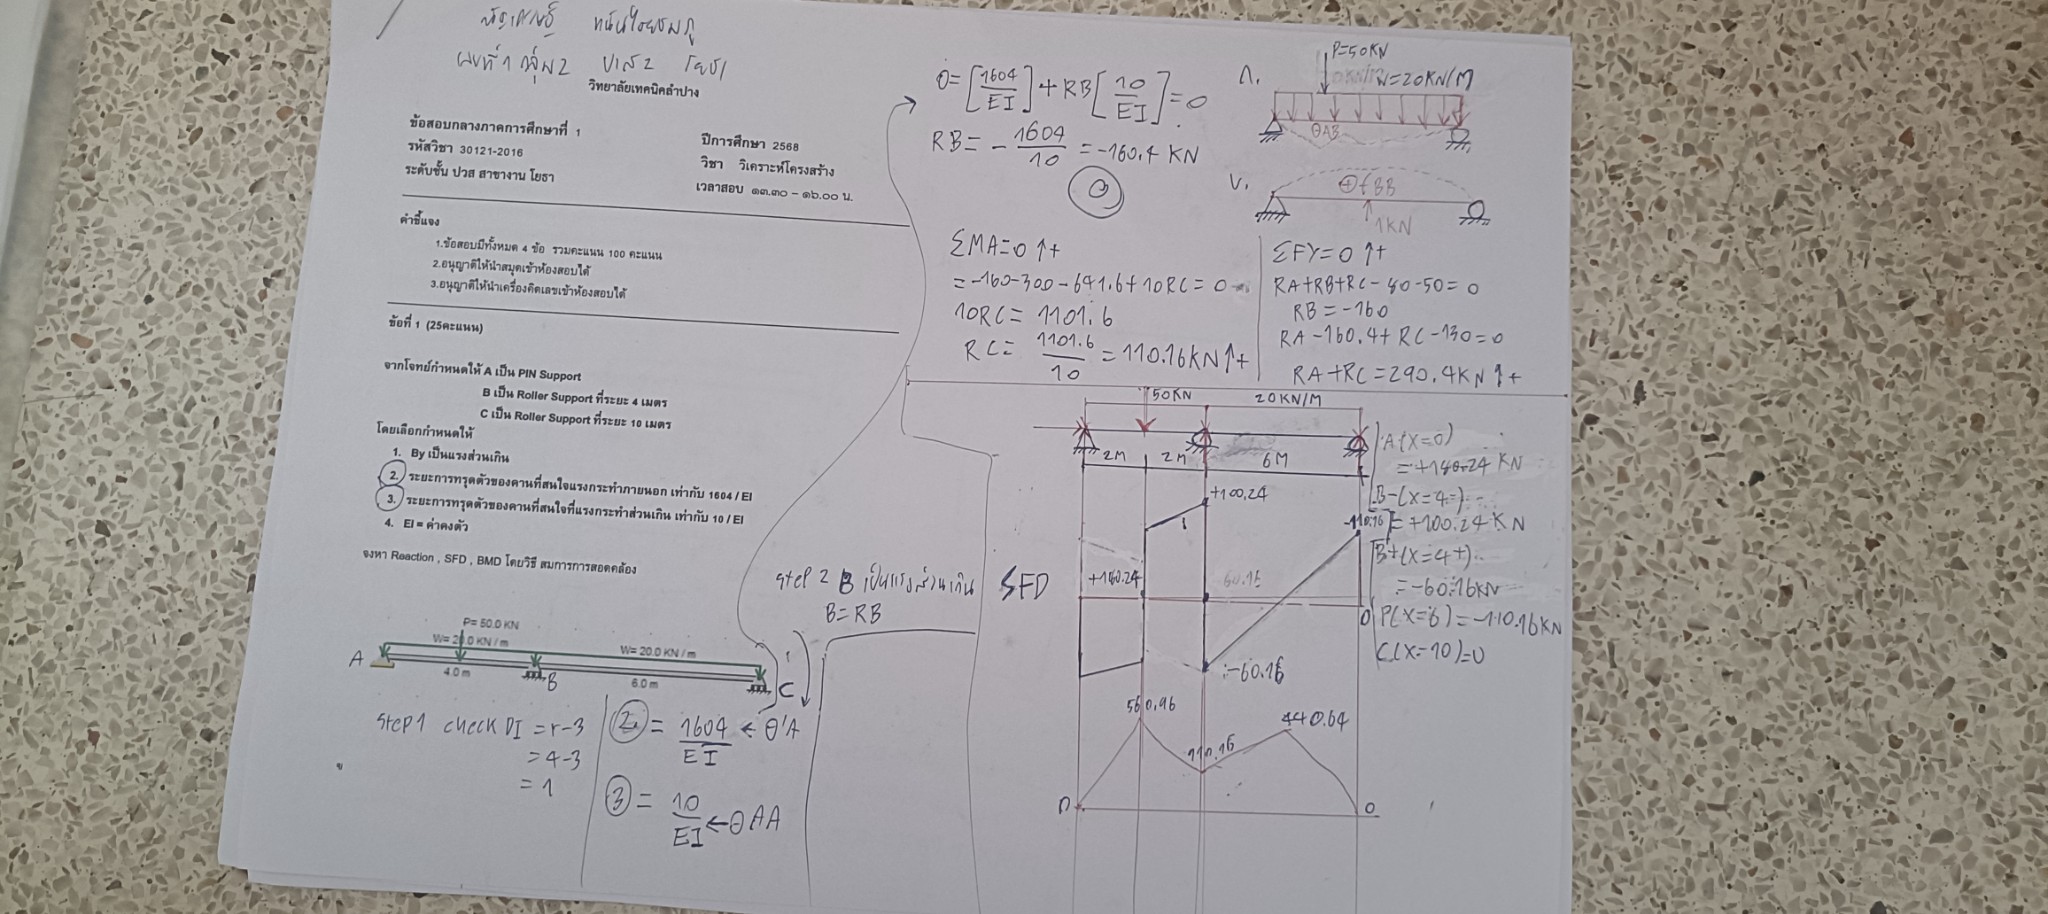 เลขที่ 1 กลุ่ม 2 ปวส 2 โยธา
วิทยาลัยเทคนิคลำปาง
ข้อสอบกลางภาคการศึกษาที่ 1
ปีการศึกษา 2568
รหัสวิชา 30121-2016
วิชา วิเคราะห์โครงสร้าง
ระดับชั้น ปวส สาขางาน โยธา
เวลาสอบ ๑๓.๓๐ - ๑๖.๐๐ น.
คำชี้แจง
1.ข้อสอบมีทั้งหมด 4 ข้อ รวมคะแนน 100 คะแนน
2.อนุญาติให้นำสมุดเข้าห้องสอบได้
3.อนุญาติให้นำเครื่องคิดเลขเข้าห้องสอบได้
ข้อที่ 1 (25คะแนน)
จากโจทย์กำหนดให้ A เป็น PIN Support
B เป็น Roller Support ที่ระยะ 4 เมตร
C เป็น Roller Support ที่ระยะ 10 เมตร
โดยเลือกกำหนดให้
1. By เป็นแรงส่วนเกิน
2. ระยะการทรุดตัวของคานที่สนใจแรงกระทำภายนอก เท่ากับ 1604 / EI
3. ระยะการทรุดตัวของคานที่สนใจที่แรงกระทำส่วนเกิน เท่ากับ 10 / EI
4. EI = ค่าคงตัว
จงหา Reaction , SFD , BMD โดยวิธี สมการการสอดคล้อง
P= 50.0 KN
W= 20.0 KN / m
W= 20.0 KN / m
A
4.0 m
B
6.0 m
C
step 1 check DI = r-3
= 4-3
= 1
2. = 1604/EI ← θ'A
3 = 10/EI ← θAA
step 2 B เป็นแรงส่วนเกิน
B = RB
0 = [1604/EI] + RB [10/EI] = 0
RB = - 1604/10 = -160.4 KN
ΣMA = 0 ↑+
= -160-300-641.6+10RC = 0
10RC = 1101.6
RC = 1101.6/10 = 110.16 KN ↑+
P=50KN
W=20KN/M
θAB
⊕fBB
1KN
ΣFY = 0 ↑+
RA+RB+RC-80-50 = 0
RB = -160
RA-160.4+RC-130 = 0
RA+RC = 290.4 KN ↑+
50KN
20KN/M
2M 2M 6M
A(X=0)
= +180.24 KN
B-(X=4-)
= +100.24 KN
B+(X=4+)
= -60.16KN
P(X=6) = -110.16KN
C(X=10)=0
SFD
+180.24
+100.24
60.16
-110.16
-60.16
0
560.96
110.16
440.64
0
0